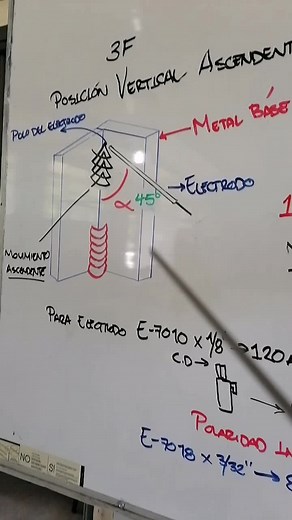 3F
POSICIÓN VERTICAL ASCENDENT
POLO DEL ELECTRODO
METAL BASE
ELECTRODO
α 45°
MOVIMIENTO
ASCENDENTE
PARA ELECTRODO E-7010 x 1/8 → 120A
C.D →
POLARIDAD IN
E-7018 x 3/32" →
NO
SI